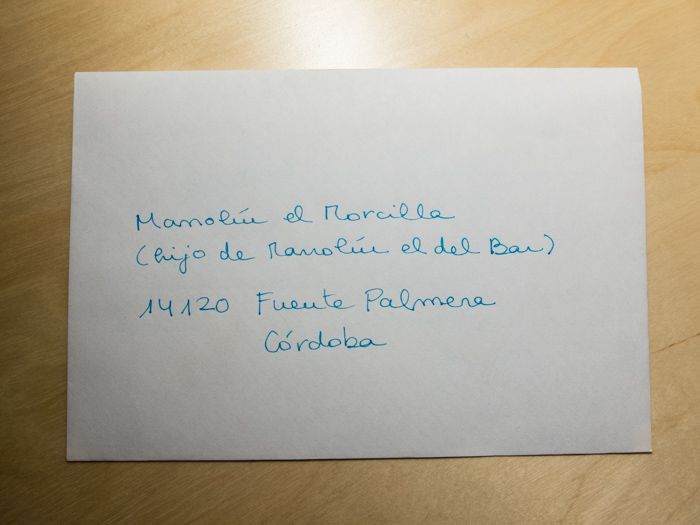 Manolín el Morcilla
(hijo de Manolín el del Bar)
14120 Fuente Palmera
Córdoba